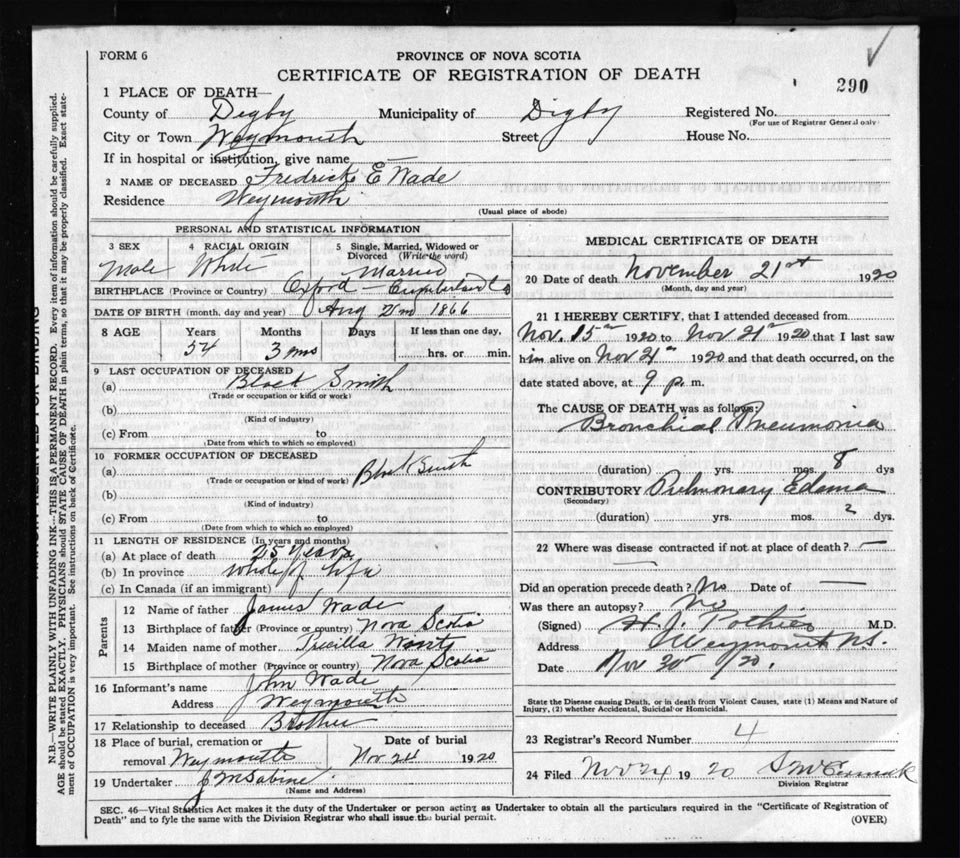 FORM 6
PROVINCE OF NOVA SCOTIA
CERTIFICATE OF REGISTRATION OF DEATH
290
1 PLACE OF DEATH—
County of Digby Municipality of Digby Registered No.
(For use of Registrar General only)
City or Town Weymouth Street House No.
If in hospital or institution, give name —
2 NAME OF DECEASED Fredrick E Wade
Residence Weymouth
(Usual place of abode)
PERSONAL AND STATISTICAL INFORMATION
3 SEX 4 RACIAL ORIGIN 5 Single, Married, Widowed or Divorced (Write the word)
Male White Married
BIRTHPLACE (Province or Country) Oxford — Cumberland Co
DATE OF BIRTH (month, day and year) Aug 21 1866
8 AGE Years Months Days If less than one day,
54 3 mos hrs. or min.
9 LAST OCCUPATION OF DECEASED
(a) Black Smith
(Trade or occupation or kind of work)
(b)
(Kind of industry)
(c) From to
(Date from which to which so employed)
10 FORMER OCCUPATION OF DECEASED
(a) Black Smith
(Trade or occupation or kind of work)
(b)
(Kind of industry)
(c) From to
(Date from which to which so employed)
11 LENGTH OF RESIDENCE (In years and months)
(a) At place of death 25 years
(b) In province whole of life
(c) In Canada (if an immigrant)
Parents
12 Name of father James Wade
13 Birthplace of father (Province or country) Nova Scotia
14 Maiden name of mother Pricilla
15 Birthplace of mother (Province or country) Nova Scotia
16 Informant's name John Wade
Address Weymouth
17 Relationship to deceased Brother
18 Place of burial, cremation or removal Weymouth Date of burial Nov 24 1920
19 Undertaker J M Sabine
(Name and Address)
MEDICAL CERTIFICATE OF DEATH
20 Date of death November 21st 1920
(Month, day and year)
21 I HEREBY CERTIFY, that I attended deceased from
Nov. 15th 1920 to Nov 21st 1920 that I last saw
him alive on Nov 21st 1920 and that death occurred, on the
date stated above, at 9 p. m.
The CAUSE OF DEATH was as follows:
Bronchial Pneumonia
(duration) yrs. mos. 8 dys
CONTRIBUTORY Pulmonary Edema
(Secondary)
(duration) yrs. mos. 2 dys.
22 Where was disease contracted if not at place of death? —
Did an operation precede death? No Date of —
Was there an autopsy? No
(Signed) H. J. Pothier M.D.
Address Weymouth N.S.
Date Nov 30 /20.
State the Disease causing Death, or in death from Violent Causes, state (1) Means and Nature of Injury, (2) whether Accidental, Suicidal or Homicidal.
23 Registrar's Record Number 4
24 Filed Nov 24 1920
Division Registrar
SEC. 46—Vital Statistics Act makes it the duty of the Undertaker or person acting as Undertaker to obtain all the particulars required in the "Certificate of Registration of
Death" and to fyle the same with the Division Registrar who shall issue the burial permit. (OVER)
N.B.—WRITE PLAINLY WITH UNFADING INK—THIS IS A PERMANENT RECORD. Every item of information should be carefully supplied.
AGE should be stated EXACTLY. PHYSICIANS should STATE CAUSE OF DEATH in plain terms, so that it may be properly classified. Exact statement of OCCUPATION is very important. See instructions on back of Certificate.